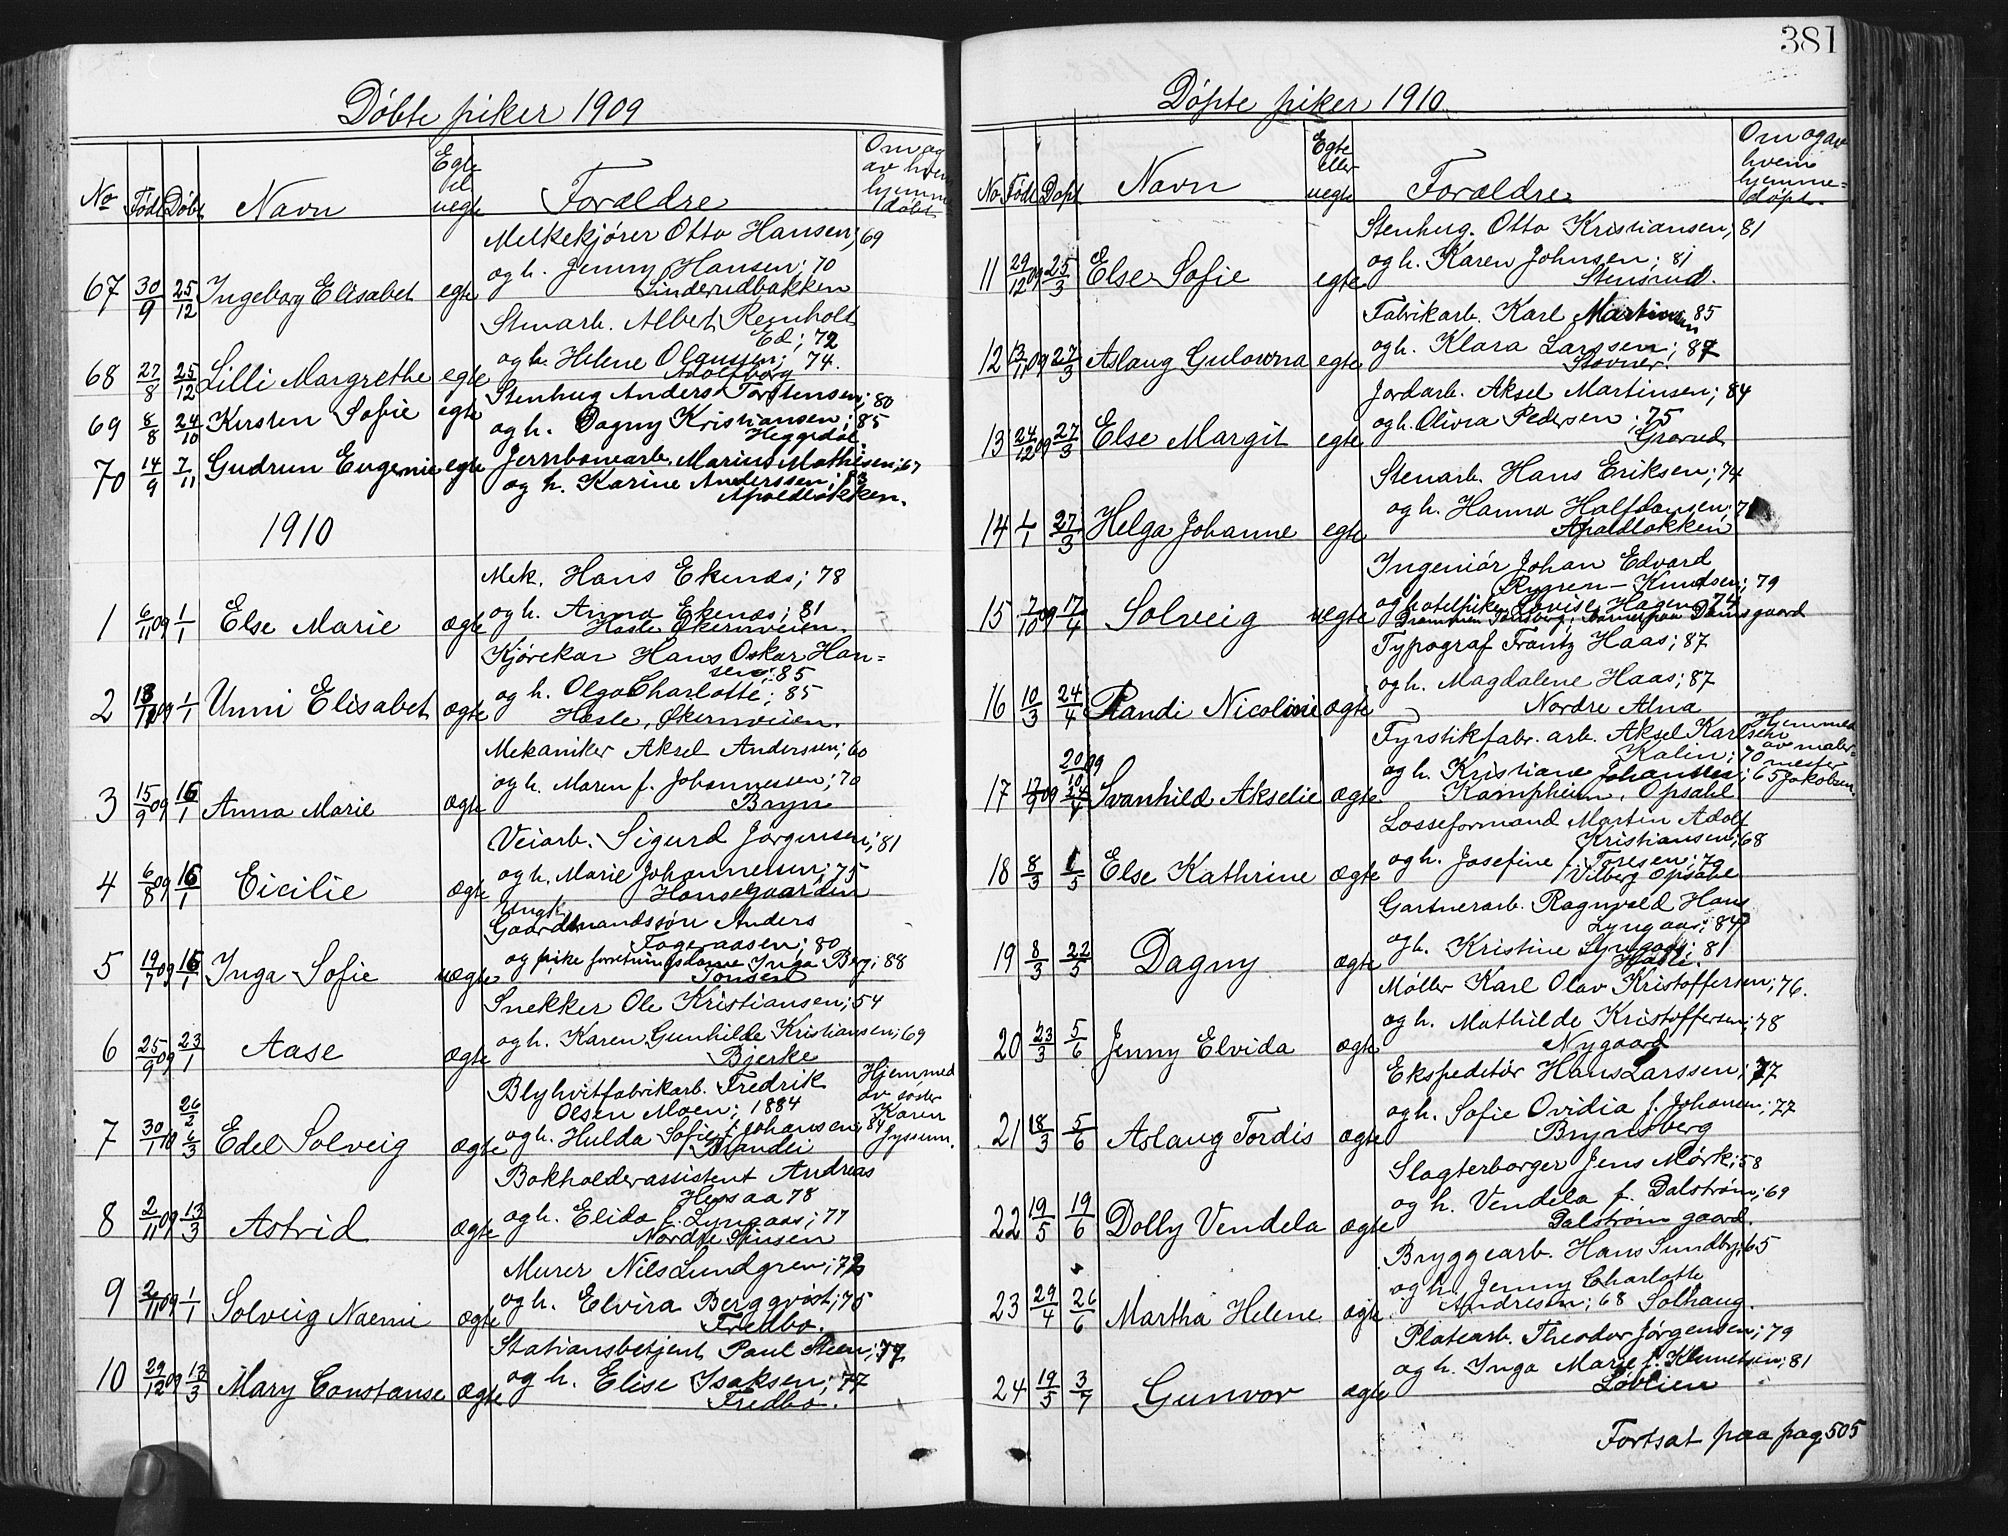 381
Døbte piker 1909
No Født Døbt Navn Egte el. uegte Forældre Om og av hvem hjemmedøbt
Melkekjører Otto Hansen; 69
67 30/9 25/12 Ingeborg Elisabet egte og h. Jenny Hansen; 70
Linderudbakken
Stenarb. Albert Reinholt
Ed; 72
68 27/8 25/12 Lilli Margrethe egte og h. Helene Olaussen; 74.
Adolfborg
Stenhug Anders Torstensen; 80
69 8/8 24/10 Kirsten Sofie egte og h. Dagny Kristiansen; 85
Heggedal
70 14/9 7/11 Gudrun Eugenie egte Jernbanearb. Marius Mathisen; 67
og h. Karine Anderssen; 83
Apaldløkken.
1910
Mek. Hans Ekenæs; 78
1 6/11 09 1/1 Else Marie ægte og h. Anna Ekenæs; 81
Hasle Økernveien.
Kjørekar Hans Oskar Han=
sen; 85
2 18/12 09 1/1 Unni Elisabet ægte og h. Olga Charlotte; 85
Hasle, Økernveien.
Mekaniker Aksel Anderssen; 60
3 15/9 09 16/1 Anna Marie ægte og h. Maren f. Johannessen; 70
Bryn
Veiarb. Sigurd Jørgensen; 81
4 6/8 09 16/1 Cicilie ægte og h. Marie Johannesen; 75
Hansegaarden
Ungk.
Gaardmandssøn Anders
Fageraasen; 80
5 19/7 09 16/1 Inga Sofie uægte og pike forretningsdame Inga Berg; 88
Tonsen
Snekker Ole Kristiansen; 54
6 25/9 09 23/1 Aase ægte og h. Karen Gunhilde Kristiansen; 69
Bjerke
Blyhvitfabrikarb. Fredrik
Olsen Moen; 1884
7 30/1 10 26/2 6/3 Edel Solveig ægte og h. Hulda Sofie f. Johansen; 84 Hjemmed av søster Karen Jyssum.
Strandli
Bokholderassistent Andreas
Hessaa 78
8 2/11 09 13/3 Astrid ægte og h. Elida f. Lyngaas; 77
Nordre Sinsen
Murer Nils Lundgren; 72
9 2/11 09 1/1 Solveig Naemi ægte og h. Elvira Bergqvist; 75
Fredbo.
Stationsbetjent Paul Steen; 77
10 29/12 09 13/3 Mary Constanse ægte og h. Elise Isaksen; 77
Fredbo.
Døpte piker 1910
No Født Døpt Navn Egte eller uegte Forældre Om og av hvem hjemme=døpt.
Stenhug. Otto Kristiansen; 81
11 29/12 09 25/3 Else Sofie egte og h. Karen Johnsen; 81
Stensrud.
Fabrikarb. Karl Martinsen 85
12 13/11 09 27/3 Aslaug Gulowna egte og h. Klara Larssen; 87
Stovner.
Jordarb. Aksel Martinsen; 84
13 24/12 09 27/3 Else Margit egte og h. Olivia Pedersen; 75
Grorud
Stenarb. Hans Eriksen; 74
14 1/1 27/3 Helga Johanne egte og h. Hanna Halfdansen; 7
Apaldløkken
Ingeniør Johan Edvard
Rygren-Knudsen; 79
15 7/10 09 17/4 Solveig uegte og hotelpike Lovise Hagen 74
Drammen Tønsberg; Barnet paa Danisgaard
Typograf Frantz Haas; 87
16 10/3 24/4 Randi Nicoline ægte og h. Magdalene Haas; 87
Nordre Alna
Fyrstikfabr. arb. Aksel Karlsen
Kalin; 70
17 17/9 09 20/10 09 24/4 Svanhild Akselie ægte og h. Kristiane Johansen; 65 Hjemmed av maler=mester Jakobsen.
Kampheim, Opsahl
Losseformand Martin Adolf
Kristiansen; 68
18 8/3 1/5 Else Kathrine ægte og h. Josefine f. Toresen; 70
Vilberg Opsahl
Gartnerarb. Ragnvald Hans
Lyngaas; 84
19 8/3 22/5 Dagny ægte og h. Kristine Lyngaas; 81
Hasle.
Møller Karl Olav Kristoffersen; 76.
20 23/3 5/6 Jenny Elvida ægte og h. Mathilde Kristoffersen; 78
Nygaard
Ekspeditør Hans Larssen; 77
21 18/3 5/6 Aslaug Tordis ægte og h. Sofie Ovidia f. Johansen; 77
Brynsberg
Slagterborger Jens Mørk; 58
22 19/5 19/6 Dolly Vendela ægte og h. Vendela f. Dalstrøm; 69
Dalstrøm gaard.
Bryggearb. Hans Sundby; 65
23 29/4 26/6 Martha Helene ægte og h. Jenny Charlotte
Andresen; 68 Solhaug.
Platearb. Theodor Jørgensen; 79
24 19/5 3/7 Gunvor ægte og h. Inga Marie f. Knutsen; 81
Løvlien
Fortsat paa pag 505